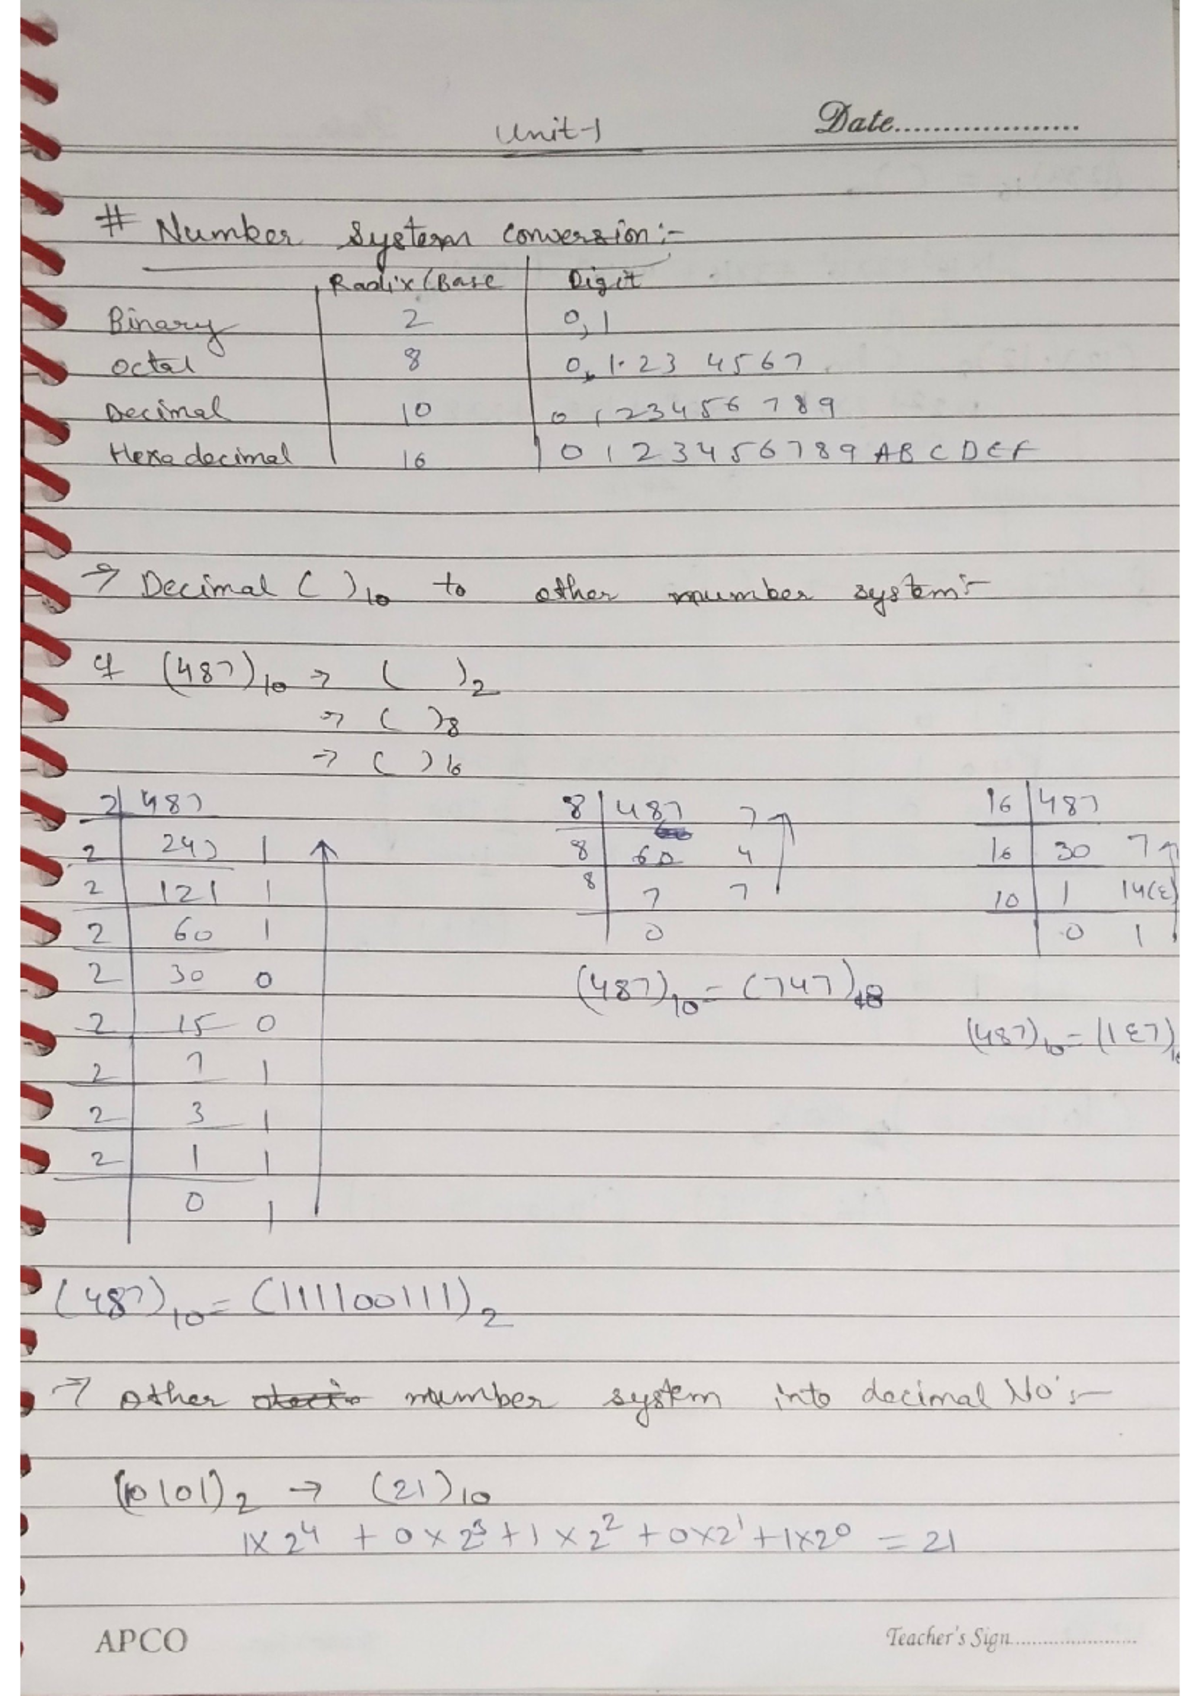 Unit-1
Date....................
# Number System Conversion:-
Radix (Base
Digit
Binary 2 0, 1
Octal 8 0, 1 2 3 4 5 6 7
Decimal 10 0 1 2 3 4 5 6 7 8 9
Hexadecimal 16 0 1 2 3 4 5 6 7 8 9 A B C D E F
→ Decimal ( )10 to other number system:-
(487)10 → ( )2
→ ( )8
→ ( )16
2 487
2 243 1
2 121 1
2 60 1
2 30 0
2 15 0
2 7 1
2 3 1
2 1 1
0 1
8 487 7
8 60 4
8 7 7
0
(487)10 = (747)8
16 487
16 30 7
10 1 14(E)
0 1
(487)10 = (1E7)16
(487)10 = (111100111)2
→ Other number system into decimal No:-
(10101)2 → (21)10
1×2⁴ + 0×2³ + 1×2² + 0×2¹ + 1×2⁰ = 21
APCO
Teacher's Sign.......................